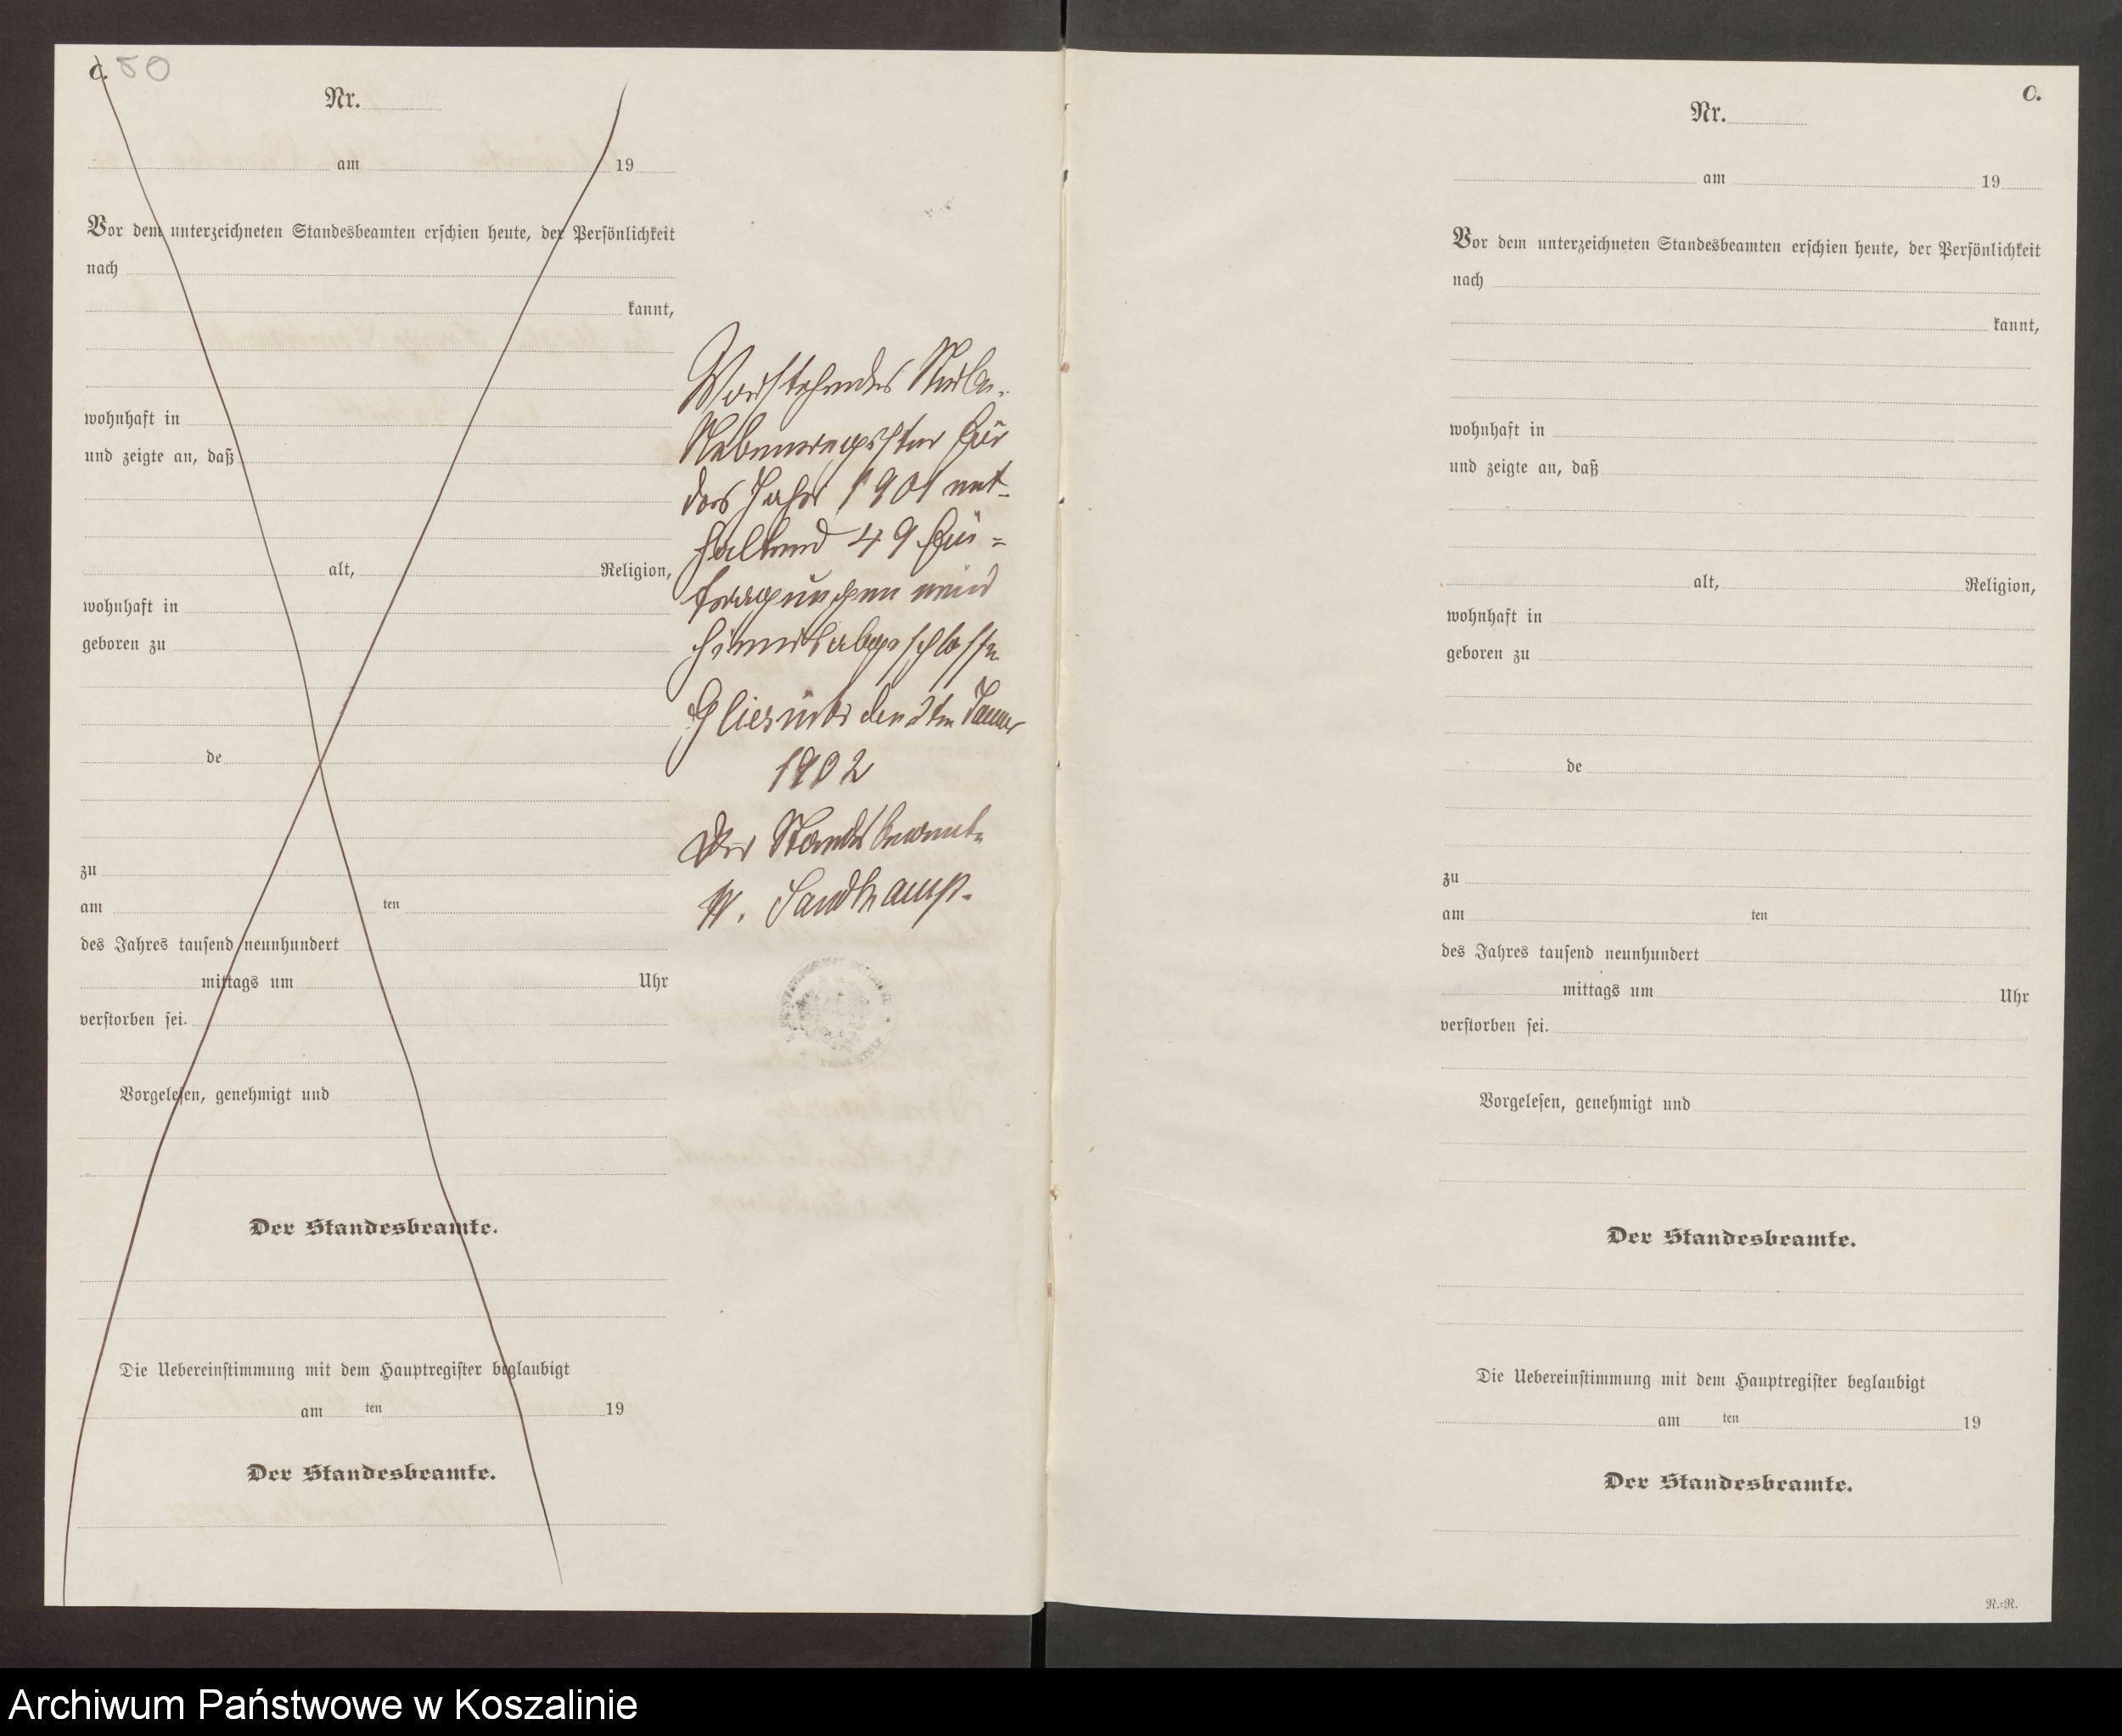 C. 50
Nr.
am 19
Vor dem unterzeichneten Standesbeamten erschien heute, der Persönlichkeit
nach
kannt,
wohnhaft in
und zeigte an, daß
alt, Religion,
wohnhaft in
geboren zu
de
zu
am ten
des Jahres tausend neunhundert
mittags um Uhr
verstorben sei.
Vorgelesen, genehmigt und
Der Standesbeamte.
Die Uebereinstimmung mit dem Hauptregister beglaubigt
am ten 19
Der Standesbeamte.
Vorstehendes Sterbe-
Nebenregister für
das Jahr 1901 ent-
haltend 49 Ein=
tragungen wird
hiermit abgeschlossen
Gliesnitz den 2ten Januar
1902
Der Standesbeamte
W. Sandkamp.
C.
Nr.
am 19
Vor dem unterzeichneten Standesbeamten erschien heute, der Persönlichkeit
nach
kannt,
wohnhaft in
und zeigte an, daß
alt, Religion,
wohnhaft in
geboren zu
de
zu
am ten
des Jahres tausend neunhundert
mittags um Uhr
verstorben sei.
Vorgelesen, genehmigt und
Der Standesbeamte.
Die Uebereinstimmung mit dem Hauptregister beglaubigt
am ten 19
Der Standesbeamte.
R.=R.
Archiwum Państwowe w Koszalinie